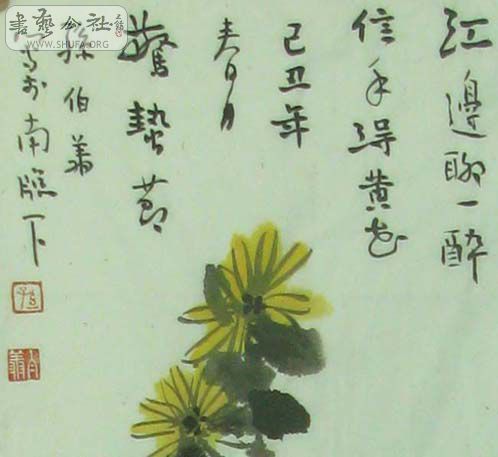 書藝公社
WWW.SHUFA.ORG
江邊聊一醉
信手得黄花
己丑年
春月
驚蟄節
孫伯
於南下